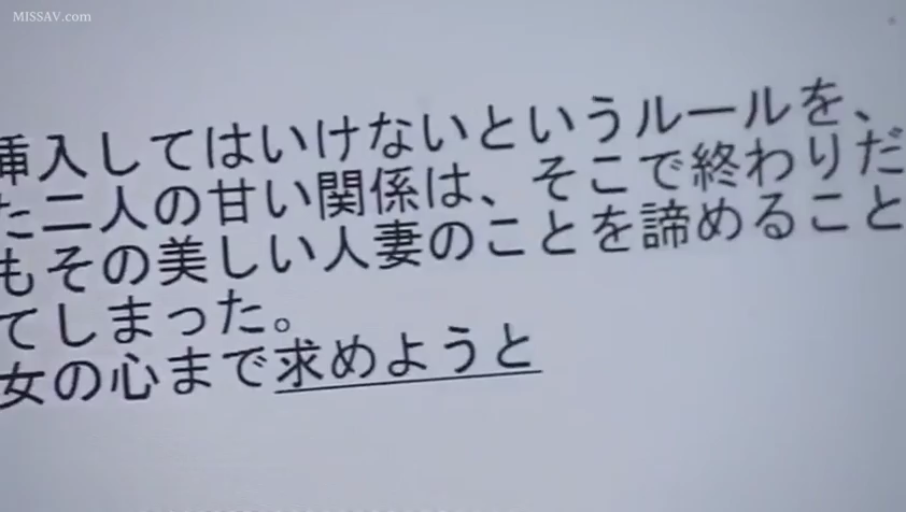 MISSAV.com
挿入してはいけないというルールを、
た二人の甘い関係は、そこで終わりだ
もその美しい人妻のことを諦めること
てしまった。
女の心まで求めようと